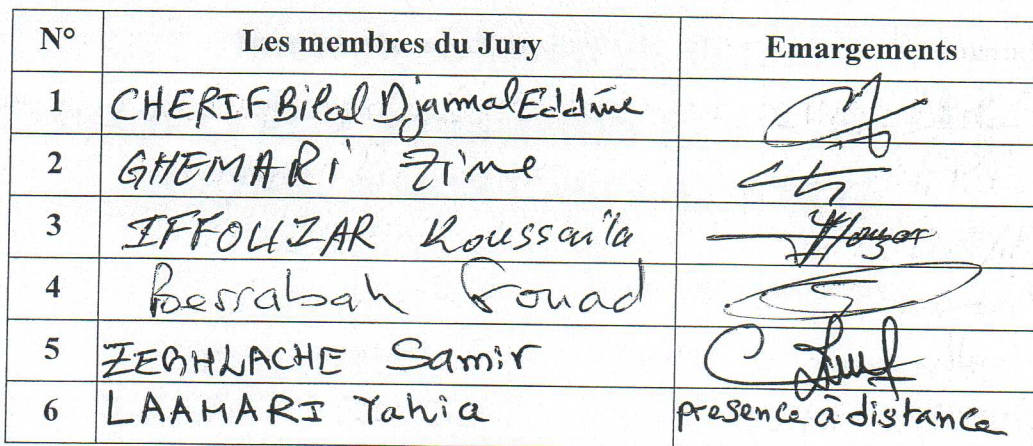 N° Les membres du Jury Emargements
1 CHERIF Bilal Djammal Eddine
2 GHEMARI Zine
3 IFFOUZAR Koussaila
4 Berrabah Fouad
5 ZEGHLACHE Samir
6 LAAMARI Yahia presence à distance